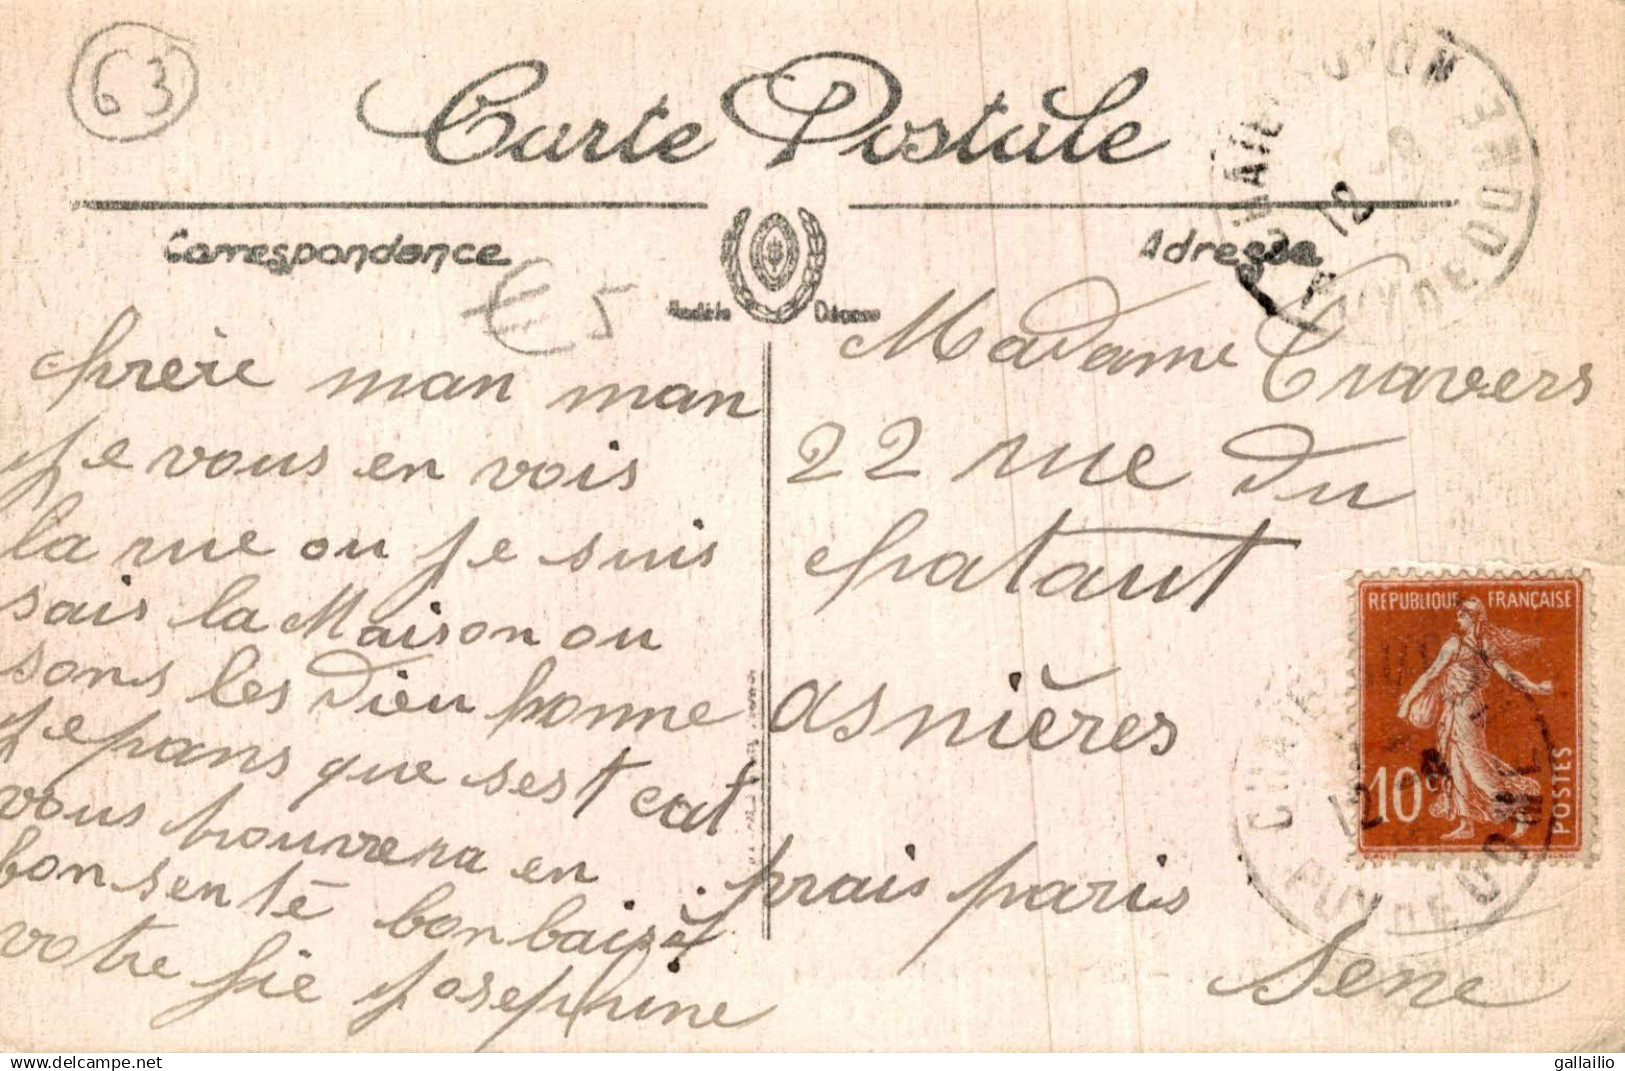 63
Carte Postale
Correspondance
Adresse
€ 5
Modèle Déposé
chreie man man
je vous en vois
la rue ou je suis
sais la Maison ou
sons les Dieu bonne
je pans que sest cat
vous trouvera en
bon sente bon baisé
votre fie Josephine
Madame Cravers
22 rue du
chataut
asnières
prais paris
Sene
RÉPUBLIQUE FRANÇAISE
10c
POSTES
PUY DE DOME
12
PUY DE DOME
12
gallailio